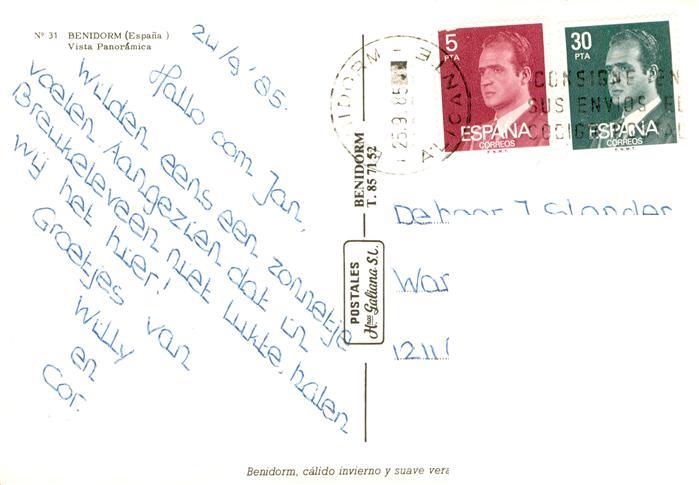 Nº 31 BENIDORM (España)
Vista Panorámica
24/9 '85.
Hallo com Jan,
Wilden eens een zonnetje
voelen Aangezien dat in
Breukeleveen niet lukte, halen
wij het hier!
Groetjes van
Willy
en
Cor.
BENIDORM
T. 85 71 52
POSTALES
Hnos Galiana S.L.
5
PTA
ESPAÑA
CORREOS
F.N.M.T.
30
PTA
ESPAÑA
CORREOS
F.N.M.T.
ALICANTE
25.9.85
CONSIGNE EN
SUS ENVIOS EL
CODIGO POSTAL
De heer J Slander
War
1211
Benidorm, cálido invierno y suave vera